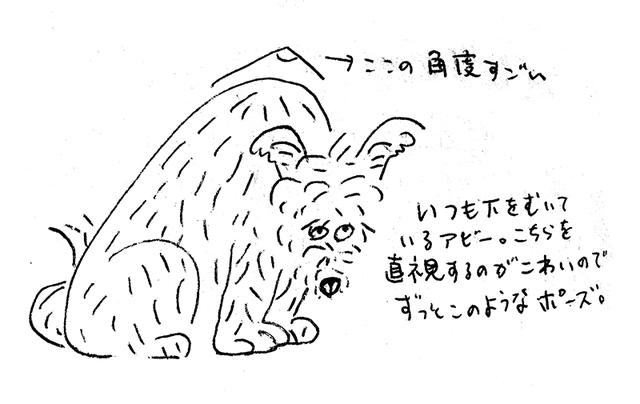 →ここの角度すごい
いつも下をむいて
いるアビー。こちらを
直視するのがこわいので
ずっとこのようなポーズ。